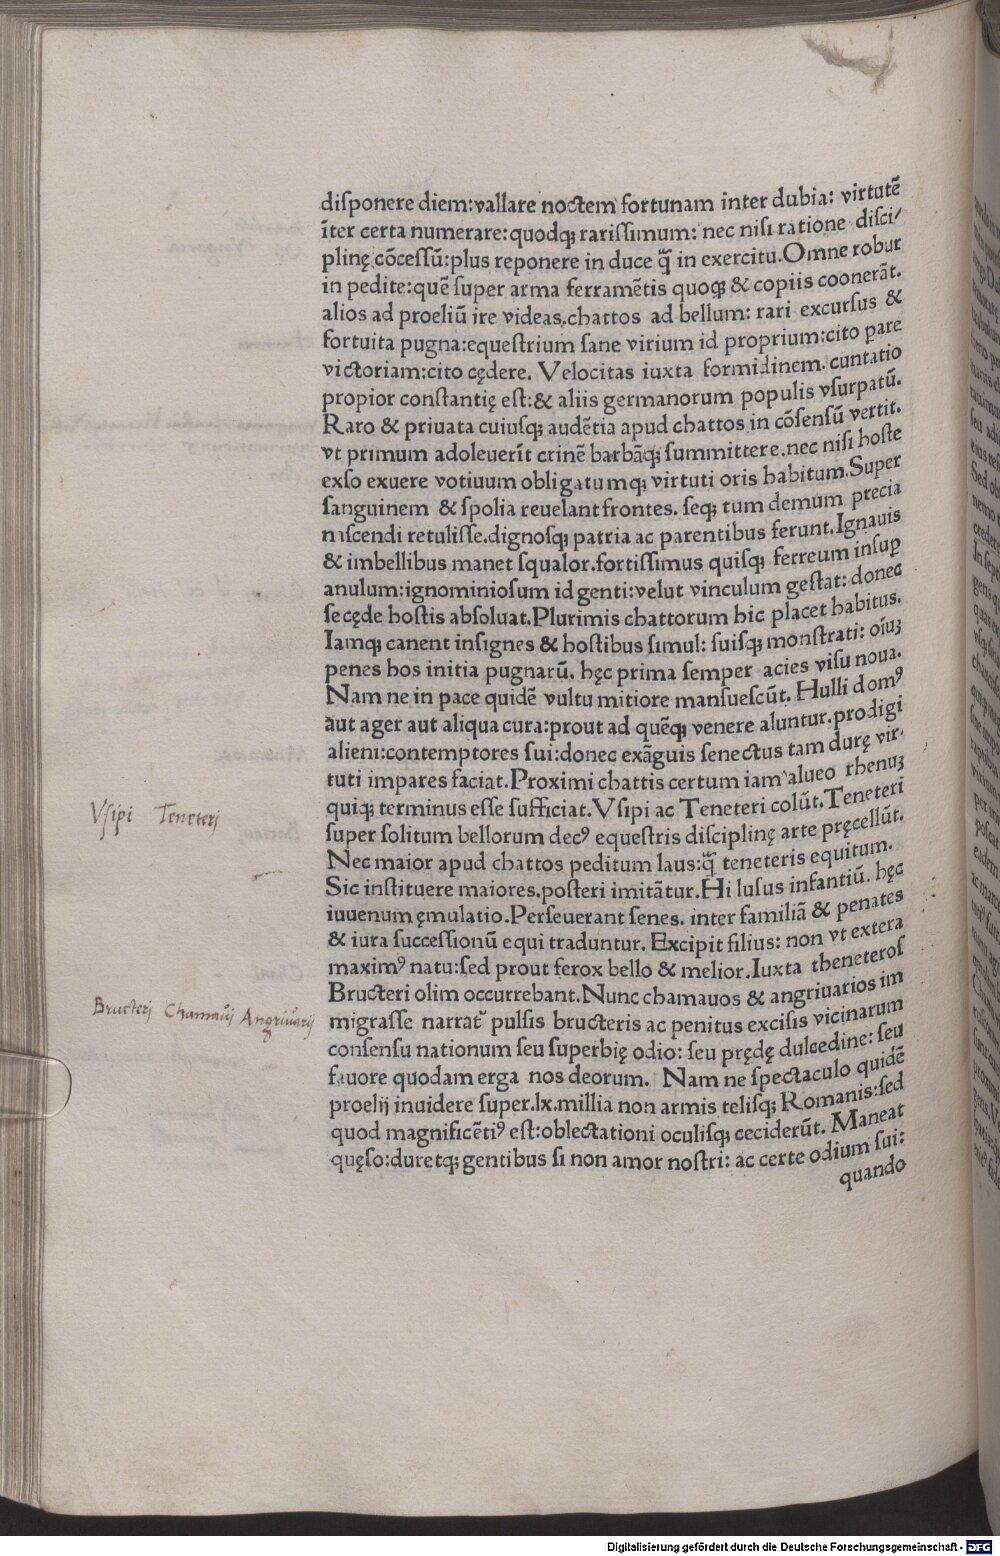 diſponere diem:vallare noctem fortunam inter dubia: virtutē
īter certa numerare:quodqꝫ rariſſimum: nec niſi ratione diſci/
plinę cōceſſū:plus reponere in duce q̄ in exercitu.Omne robur
in pedite:quē ſuper arma ferramētis quoqꝫ & copiis coonerāt.
alios ad proeliū ire videas.chattos ad bellum: rari excurſus &
fortuita pugna:equeſtrium ſane virium id proprium:cito ꝑare
victoriam:cito cędere. Velocitas iuxta formidinem. cuntatio
propior conſtantię eſt:& aliis germanorum populis vſurpatū.
Raro & priuata cuiuſqꝫ audētia apud chattos in cōſenſū vertit.
vt primum adoleuerīt crinē barbāqꝫ ſummittere.nec niſi hoſte
exſo exuere votiuum obligatumqꝫ virtuti oris habitum.Super
ſanguinem & ſpolia reuelant frontes. ſeqꝫ tum demum precia
naſcendi retuliſſe.dignoſqꝫ patria ac parentibus ferunt.Ignauis
& imbellibus manet ſqualor.fortiſſimus quiſqꝫ ferreum inſuꝑ
anulum:ignominioſum id genti:velut vinculum geſtat: donec
ſe cęde hoſtis abſoluat.Plurimis chattorum hic placet habitus.
Iamqꝫ canent inſignes & hoſtibus ſimul: ſuiſqꝫ monſtrati: oīuꝫ
penes hos initia pugnarū. hęc prima ſemper acies viſu noua.
Nam ne in pace quidē vultu mitiore manſueſcūt. Hulli domꝰ
aut ager aut aliqua cura:prout ad quēqꝫ venere aluntur.prodigi
alieni:contemptores ſui:donec exāguis ſenectus tam durę vir-
tuti impares faciat.Proximi chattis certum iam alueo rhenuꝫ
quiqꝫ terminus eſſe ſufficiat.Vſipi ac Teneteri colūt.Teneteri
ſuper ſolitum bellorum decꝰ equeſtris diſciplinę arte pręcellūt.
Nec maior apud chattos peditum laus:q̄ teneteris equitum.
Sic inſtituere maiores.poſteri imitātur.Hi luſus infantiū. hęc
iuuenum ęmulatio.Perſeuerant ſenes. inter familiā & penates
& iura ſucceſſionū equi traduntur. Excipit filius: non vt extera
maximꝰ natu:ſed prout ferox bello & melior.Iuxta theneteroſ
Bructeri olim occurrebant.Nunc chamauos & angriuarios im
migraſſe narrat᷑ pulſis bructeris ac penitus exciſis vicinarum
conſenſu nationum ſeu ſuperbię odio: ſeu prędę dulcedine: ſeu
fauore quodam erga nos deorum. Nam ne ſpectaculo quidē
proelij inuidere ſuper.lx.millia non armis teliſqꝫ Romanis:ſed
quod magnificētiꝰ eſt:oblectationi oculiſqꝫ ceciderūt. Maneat
quęſo:duretqꝫ gentibus ſi non amor noſtri: ac certe odium ſui:
quando
Vſipi Teneterj
Bructerj Chamauj Angriuarij
Digitalisierung gefördert durch die Deutsche Forschungsgemeinschaft - DFG